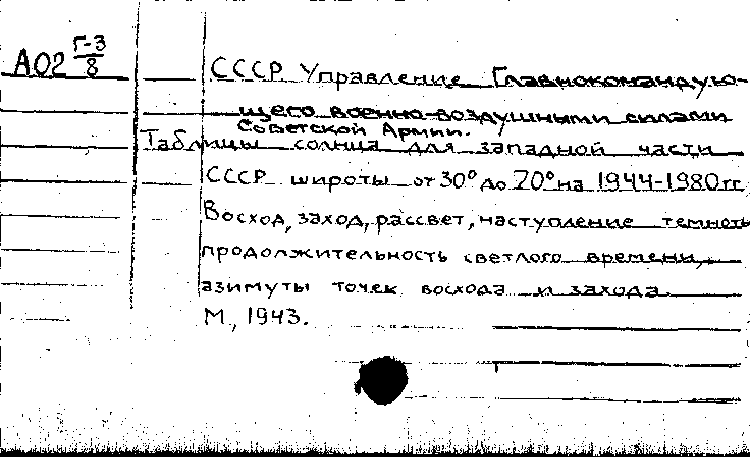 А02 Г-3/8
СССР. Управление Главнокомандую-
щего военно-воздушными силами
Советской Армии.
Таблицы солнца для западной части
СССР широты от 30° до 70° на 1944-1980 гг.
Восход, заход, рассвет, наступление темноты
продолжительность светлого времени,
азимуты точек восхода и захода.
М., 1943.